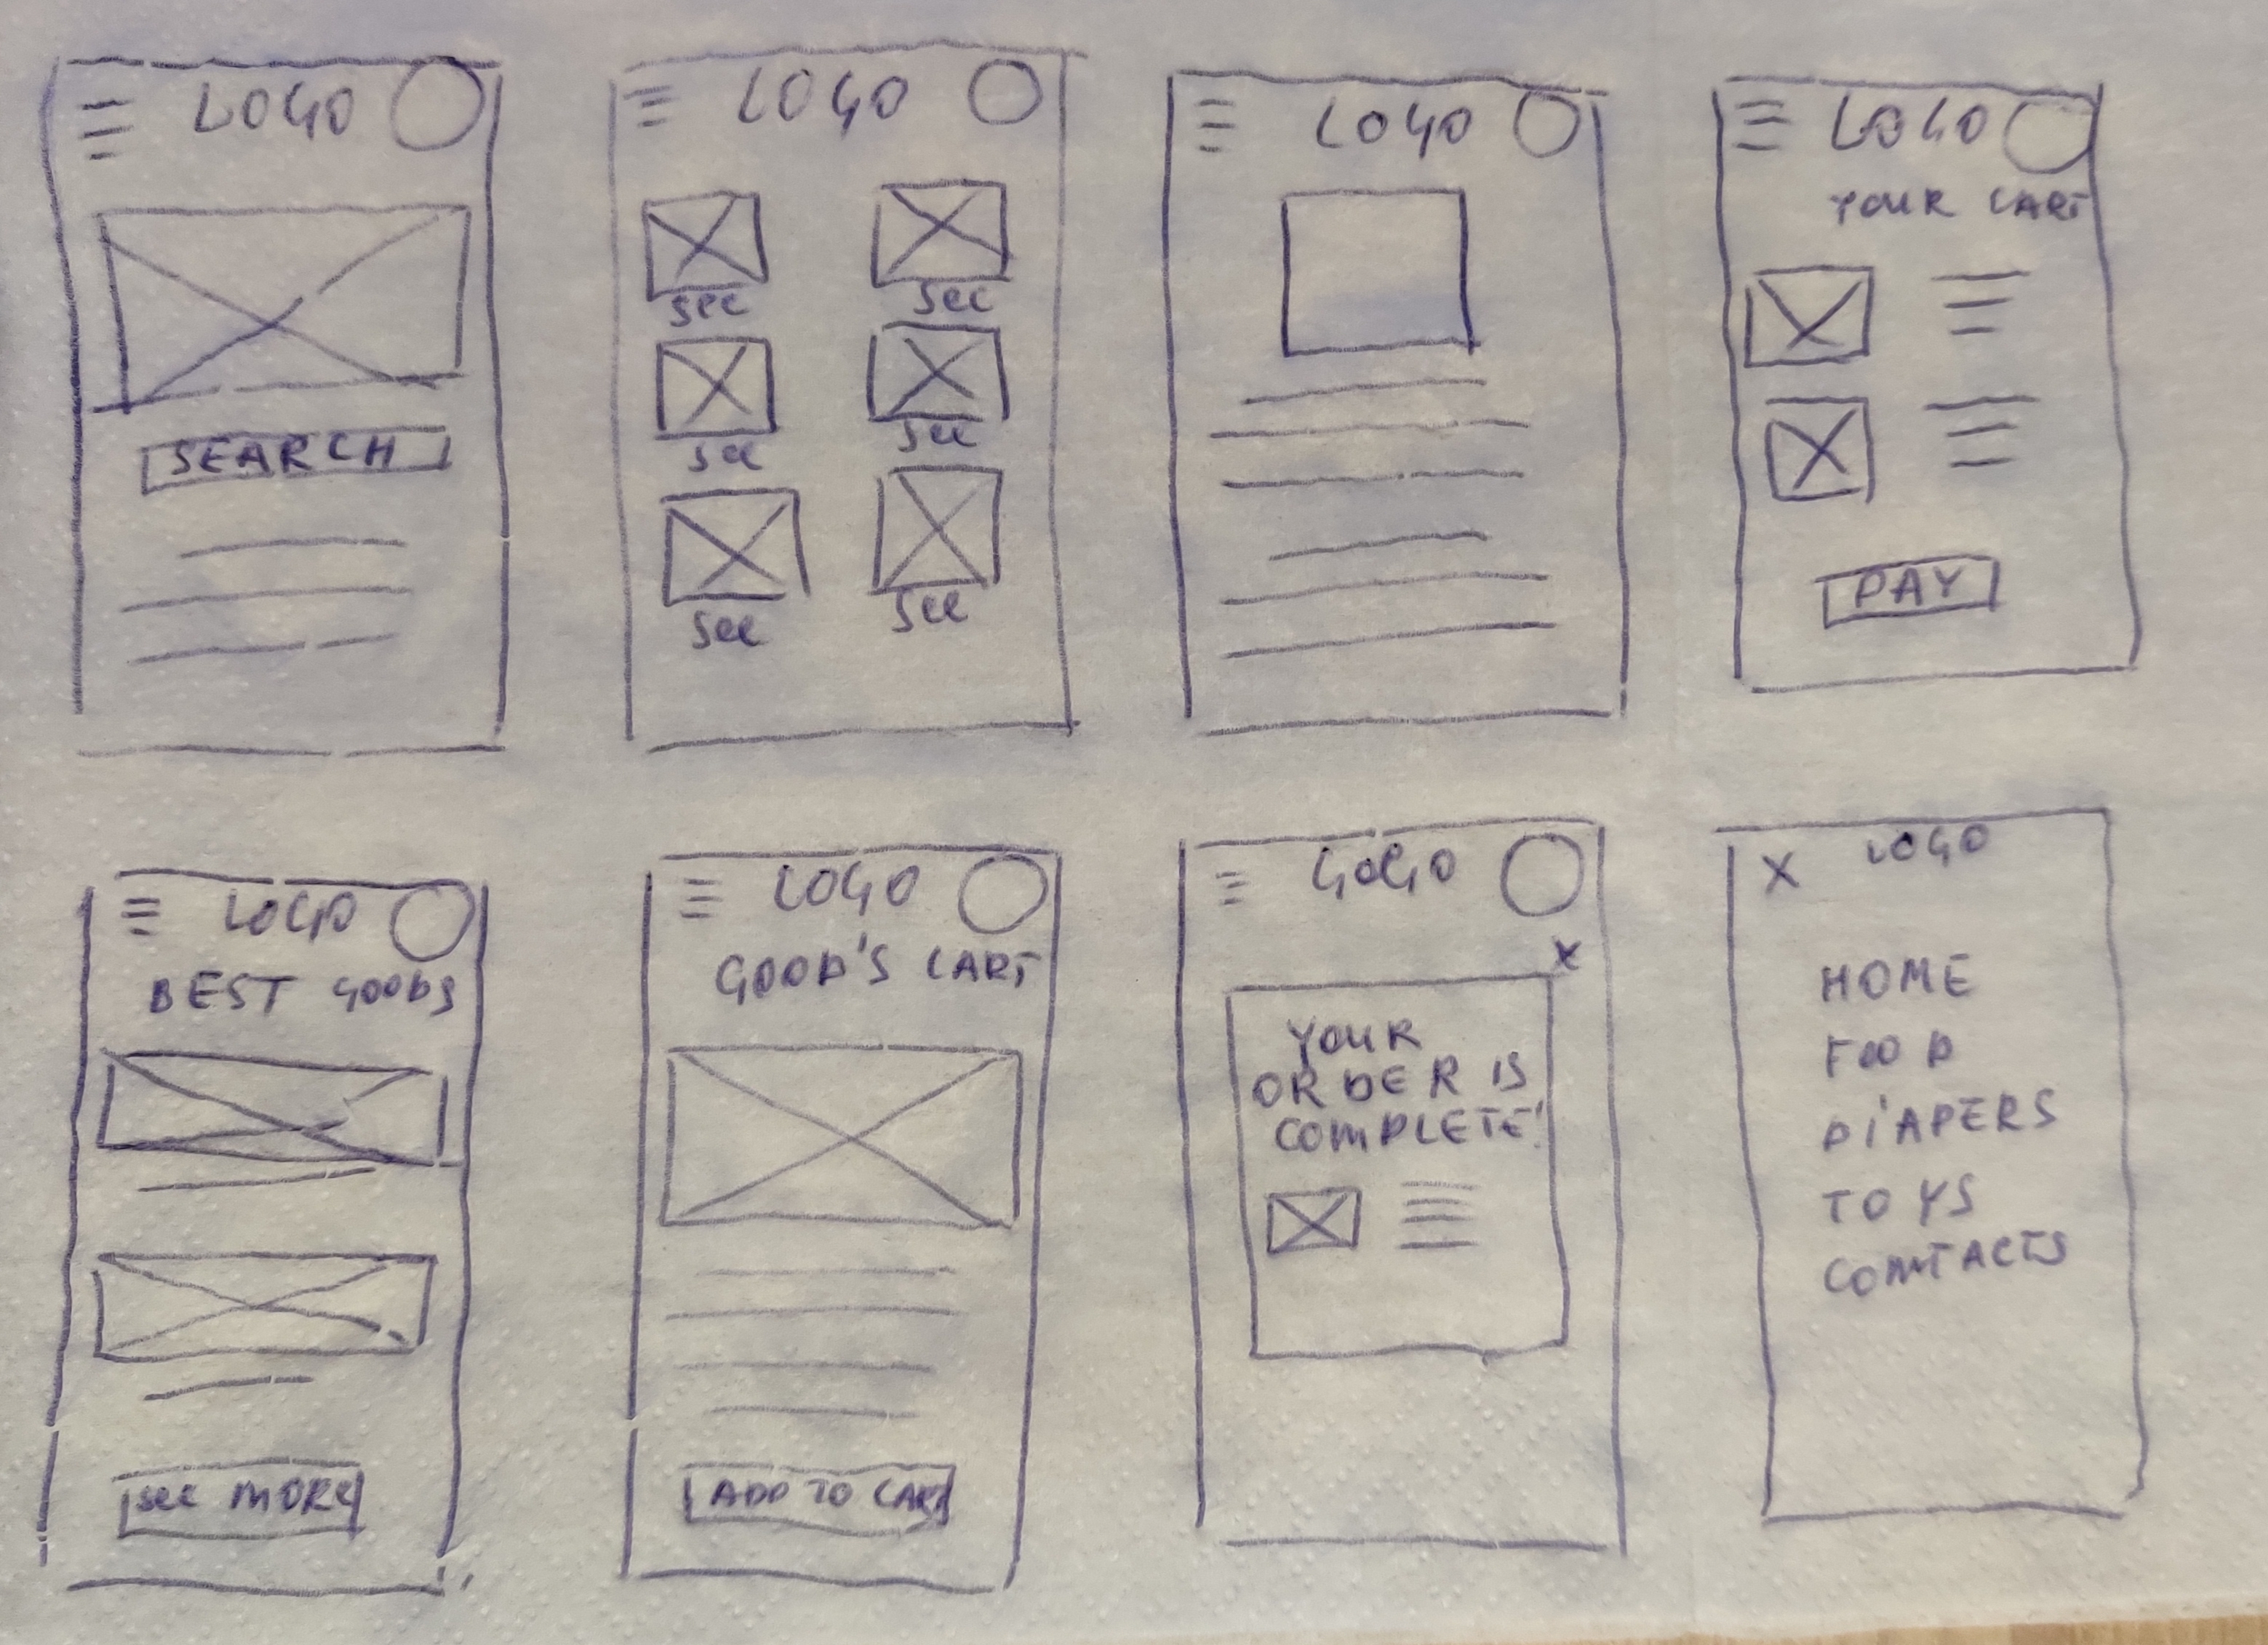 LOGO
SEARCH
LOGO
see
see
see
see
see
see
LOGO
LOGO
YOUR CART
PAY
LOGO
BEST GOODS
see MORE
LOGO
GOOD'S CART
ADD TO CART
GOGO
X
YOUR
ORDER IS
COMPLETE!
X LOGO
HOME
FOOD
DIAPERS
TOYS
CONTACTS